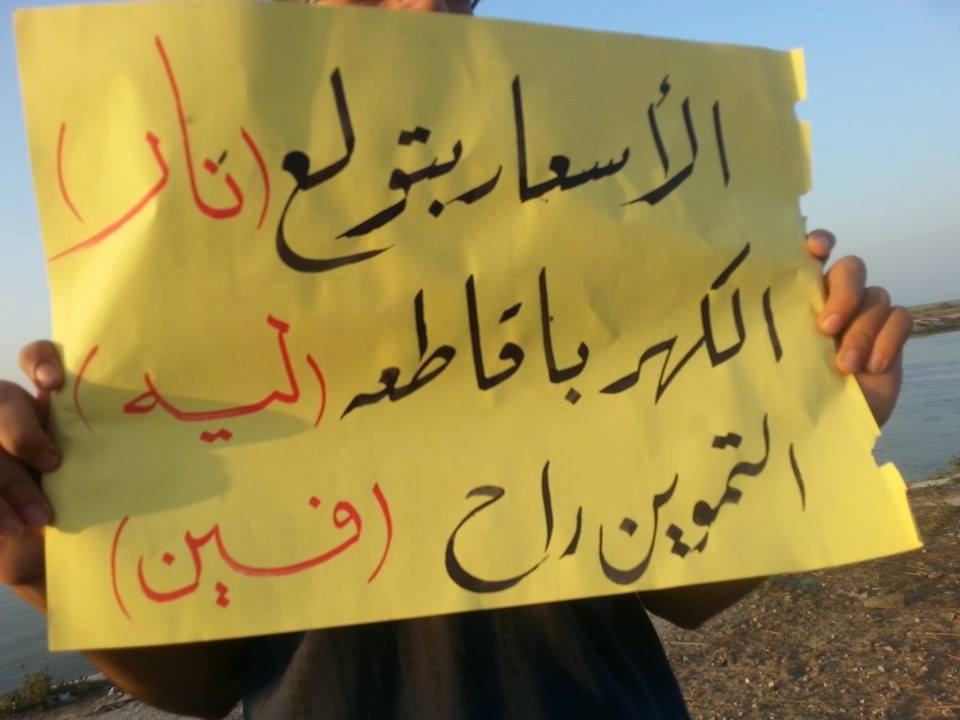 الأسعار بتولع (نار)
الكهربا قاطعه (ليه)
التموين راح (فين)